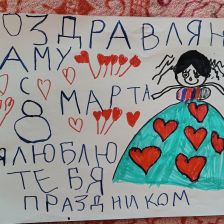 ОЗДРАВЛЯЮ
АМУ
С
8 МАРТА
ЛЮБЛЮ
ТЕБЯ
ПРАЗДНИКОМ